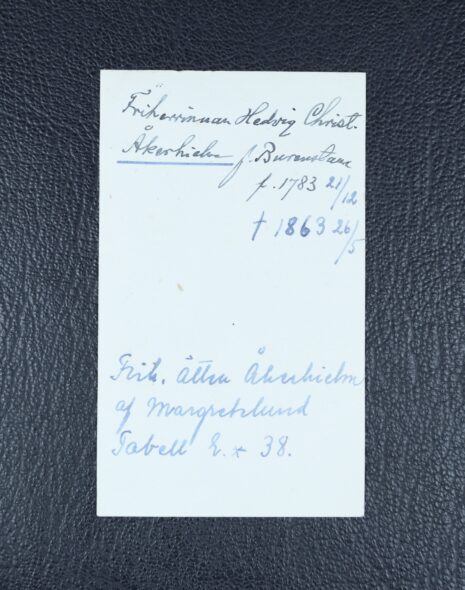 Friherrinnan Hedvig Christ.
Åkerhielm f. Burenstam
f. 1783 21/12
† 1863 26/5
Frih. ätten Åkerhielm
af Margretelund
Tabell 38.